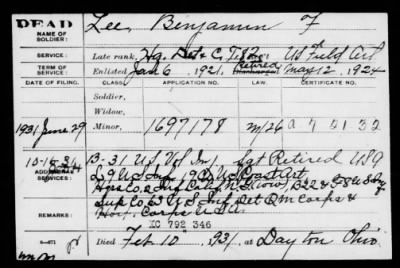 DEAD
NAME OF SOLDIER:
Lee, Benjamin F
SERVICE:
Late rank, Hq. Det & C. T. US Field Art
TERM OF SERVICE:
Enlisted Jan 6, 1921, Retired Discharged May 12, 1924
DATE OF FILING. CLASS. APPLICATION NO. LAW. CERTIFICATE NO.
Soldier,
Widow,
1931 June 29 Minor, 1697178 m/26 a 9 01 32
B-31 U.S. Vol Inf. Sgt Retired USA
ADDITIONAL SERVICES:
L 9 US Inf 19 Co US Coast Art
Sup Co 63 U S Inf Det Q M Corps &
REMARKS:
Hosp. Corps U.S.A.
XC 792 346
Died Feb 10, 1931, at Dayton Ohio